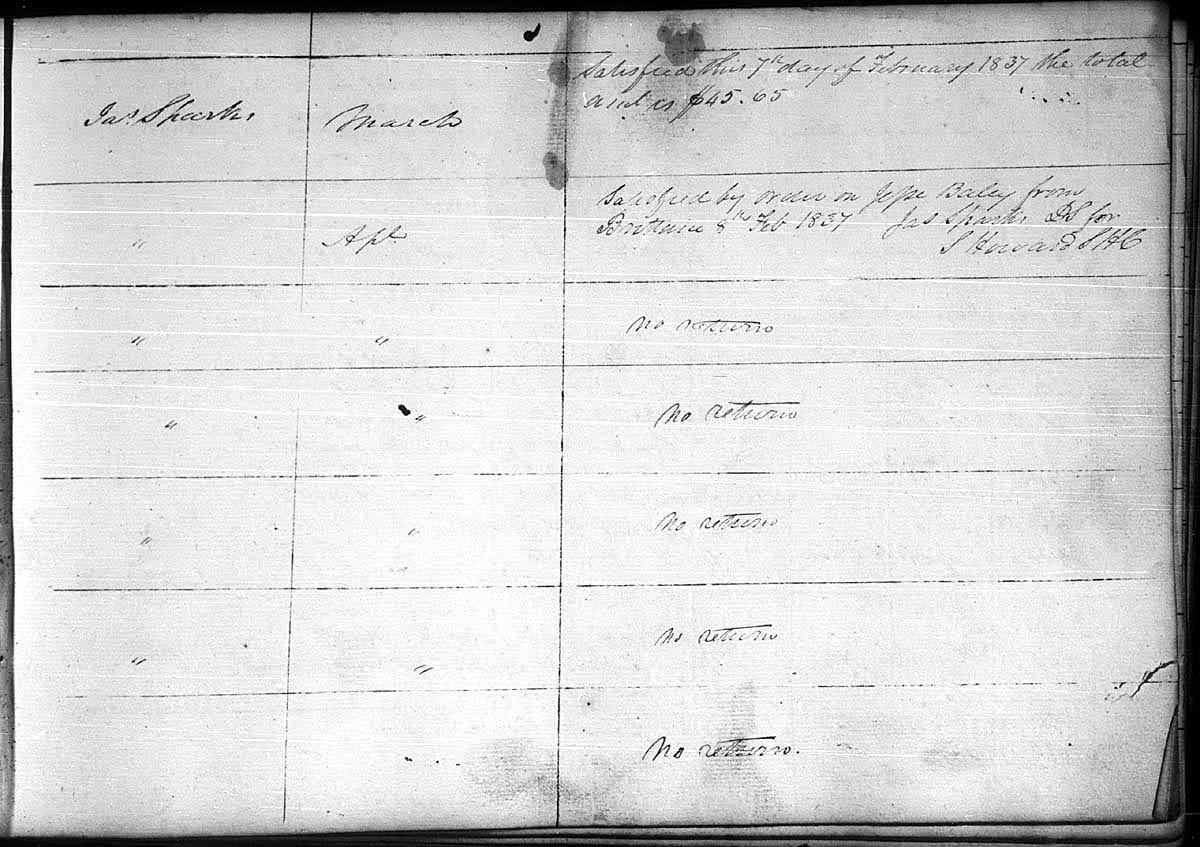 Satisfied this 7th day of February 1837 the total
amt is $45.65
Jas. Sparks March
Satisfied by order on Jesse Baley from
Brittain 8th Feb 1837 Jas Sparks DS for
" Apl
S Howard S H C
" " No return
" " No return
" " No return
" " No return
No return.